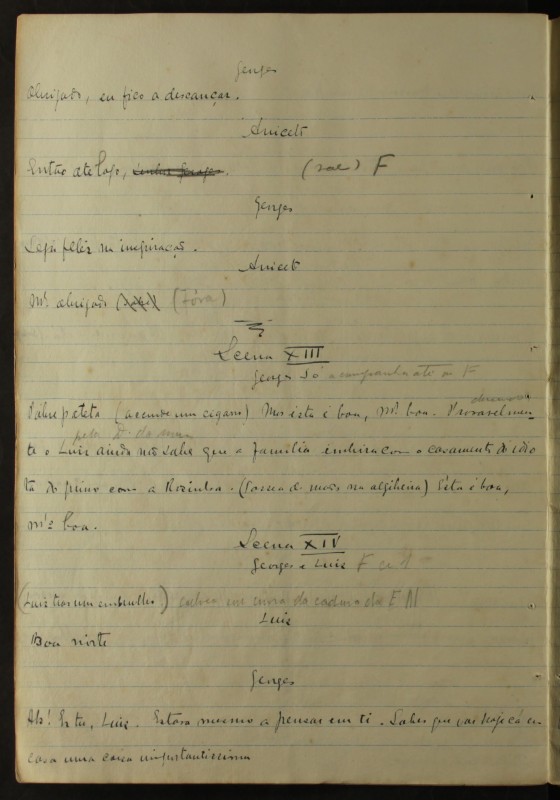 Georges
Obrigado, eu fico a descançar.
Aniceto
Então até logo, (sae) F
Georges
Seja feliz na inspiração.
Aniceto
Mto obrigado (Fóra)
Scena XIII
Georges só acompanha até ao F
Pobre pateta (accende um cigarro) Mas esta é boa, mto boa. Provavelmen-
te o Luiz ainda não sabe que a familia embirra com o casamento do idio
ta do primo com a Rozinha. (Passea de mãos na algibeira) Esta é boa,
mto boa.
Scena XIV
Georges e Luiz F
(Luiz traz um embrulho) em cima da cadeira da E
Luiz
Boa noite
Georges
Ah! Es tu, Luiz. Estava mesmo a pensar em ti. Sabes que vae hoje cá em
casa uma coisa importantissima